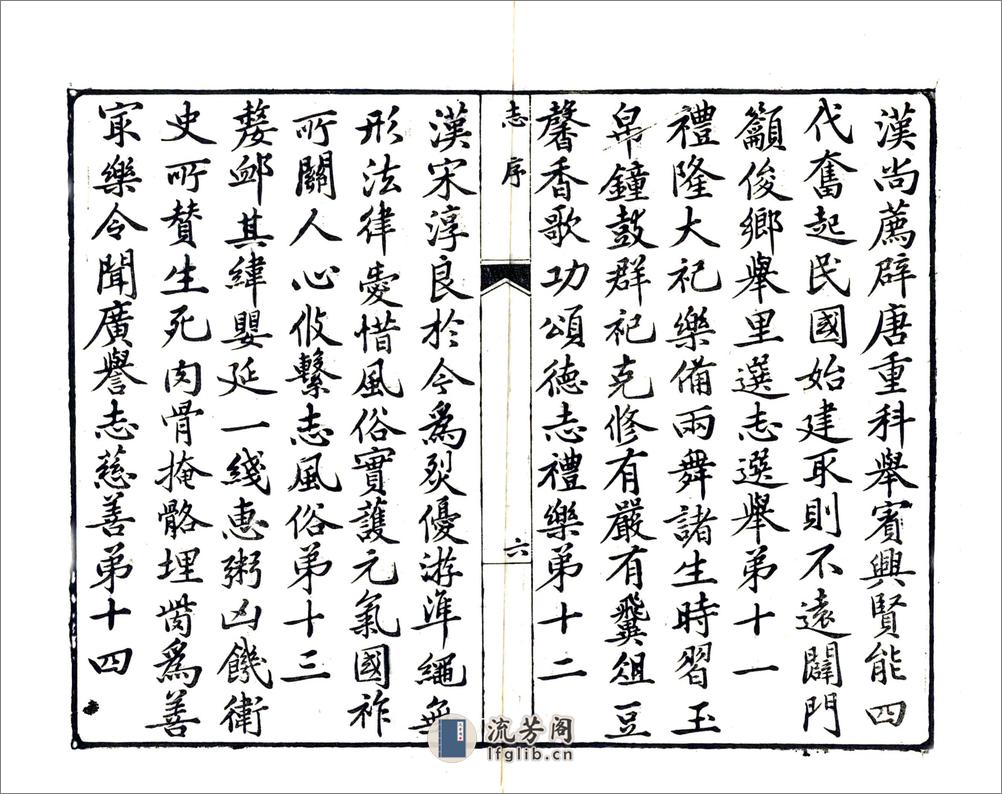 漢尚薦辟唐重科舉賓興賢能四
代奮起民國始建取則不遠闢門
籲俊鄉舉里選志選舉第十一
禮隆大祀樂備兩舞諸生時習玉
帛鐘鼓群祀克修有嚴有翼俎豆
馨香歌功頌德志禮樂第十二
志序
六
漢宋淳良於今為烈優游準繩無
形法律愛惜風俗實護元氣國祚
所關人心攸繫志風俗第十三
嫠卹其緯嬰延一綫惠粥凶饑衛
史所贊生死肉骨掩骼埋胔為善
冣樂令聞廣譽志慈善第十四
流芳阁
lfglib.cn